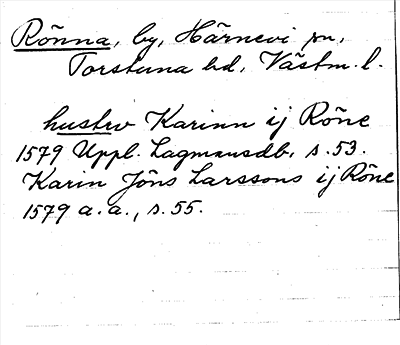 Rönna, by, Härnevi sn,
Torstuna hd, Västm. l.
hustrv Karinn ij Röne
1579 Uppl. Lagmansdb. s. 53.
Karin Jöns Larssons ij Röne
1579 a. a., s. 55.